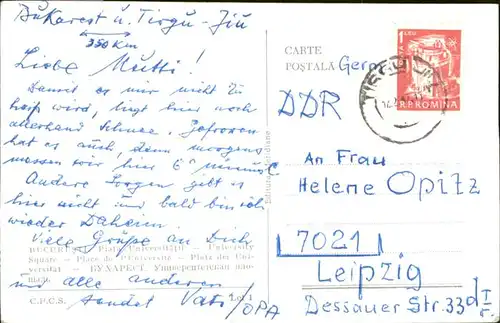 Bukarest u. Tirgu-Jiu
350 Km
Liebe Mutti!
Damit es mir nicht zu
heiß wird, liegt hier noch
allerhand Schnee. Gefroren
hat es auch, denn morgens
messen wir hier 6° minus
Andere Sorgen gibt es
hier nicht und bald bin ich
wieder Daheim.
Viele Grüße an Dich
und alle anderen
sendet Vati/OPA
BUCUREŞTI – Piața Universității – University
Square – Place de l'Université – Platz der Uni-
versität – БУХАРЕСТ. Университетская пло-
C.P.C.S.
1 Lei
CARTE
POŞTALĂ
Germ
DDR
An Frau
Helene Opitz
7021
Leipzig
Dessauer Str. 33d
1 LEU
R.P.ROMINA